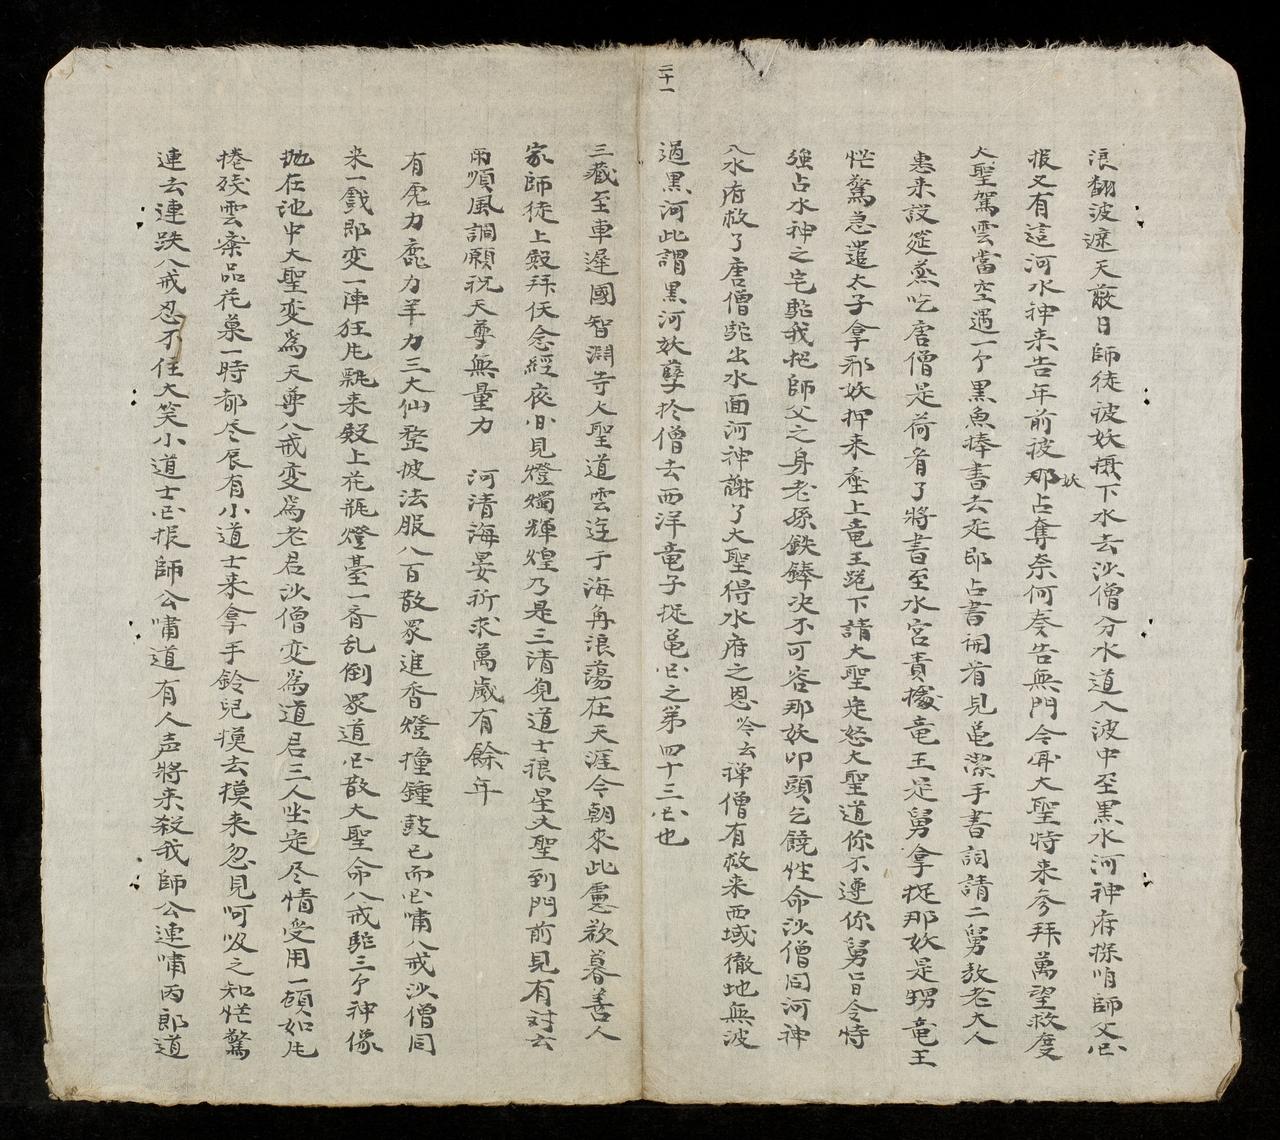 二十一
浪翻波遮天蔽日師徒被妖攝下水去沙僧分水道入波中至黑水河神府探听師父㐫
报又有這河水神来告年前被那妖占奪奈何奏告無門今听大聖特来参拜萬望救度
大聖駕雲當空遇一个黑魚捧書去走即占書開看見黾潔手書詞請二舅敖老大人
惠来設筵蒸吃唐僧是荷看了將書至水宮責㩀竜王是舅拿捉那妖是甥竜王
忙驚急遣太子拿邪妖押来座上竜王跪下請大聖定怒大聖道你不遵你舅旨令特
強占水神之宅駝我把師父之身老孫鉄鋒决不可容那妖叩頭乞饒性命沙僧同河神
入水府救了唐僧駝出水面河神謝了大聖得水府之恩吟云禅僧有救来西域徹地無波
過黒河此謂黒河妖孽拎僧去西洋竜子捉黾㐫之第四十三㐫也
三藏至車遲國智淵寺人聖道雲迯于海角浪蕩在天涯今朝來此處欲暮善人
家師徒上殿拜伏念經夜间見燈燭輝煌乃是三清覌道士穰星大聖到門前見有对云
雨順風調願祝天尊無量力　河清海晏祈求萬歲有餘年
有虎力鹿力羊力三大仙整披法服八百散眾進香燈撞鍾鼓已而㐫嘯八戒沙僧同
来一戲即变一陣狂風飄来殿上花瓶燈臺一斉乱倒眾道㐫散大聖命八戒駝三个神像
抛在池中大聖变為天尊八戒变為老君沙僧变為道君三人坐定尽情受用一頓如風
捲殘雲案品花菓一時都尽辰有小道士来拿手鈴兒摸去摸来忽見呵吸之知忙驚
連去連跌八戒忍不住大笑小道士㐫报師公嘯道有人声將来殺我師公連嘯丙郎道